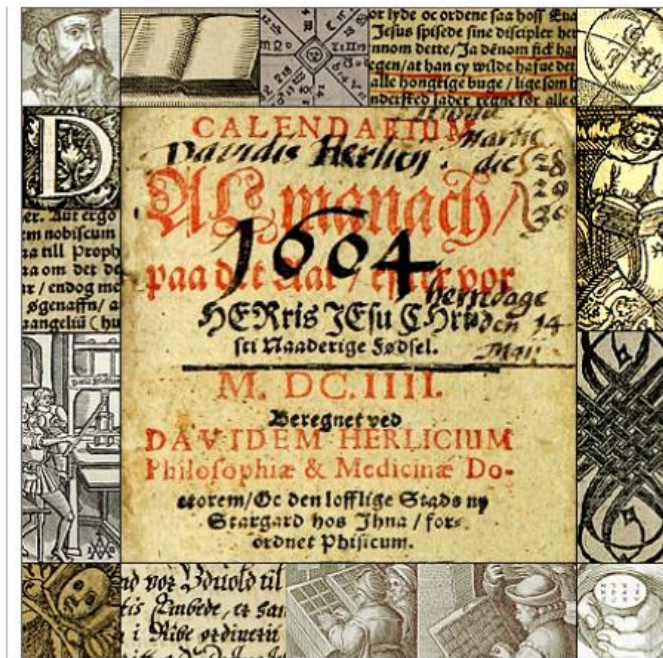 or lyde oc ordene saa hoss Eua
Jesus spisede sine discipler her
nnom dette/Ja denom fick han
egen/at han ey wilde hafue det
alle hongrige buge/lige som h
D
er. Aut ergo
em nobiscum
ra till Proph
ra om det de
ar/endog me
øgenaffn/a
aangeliü (hu
CALENDARIUM
Davidis Herlicij. Martii
die 28
29
30
ALmanach/
1604
paa det Aar/effter vor
HERris JEsu CHri-
sti Naaderige Fødsel.
herredage
den 14
Maij
M. DC.IIII.
Beregnet ved
DAVIDEM HERLICIUM
Philosophiæ & Medicinæ Do-
ctorem/Oc den lofflige Stads ny
Stargard hos Ihna/for-
ordnet Phisicum.
i Ribe